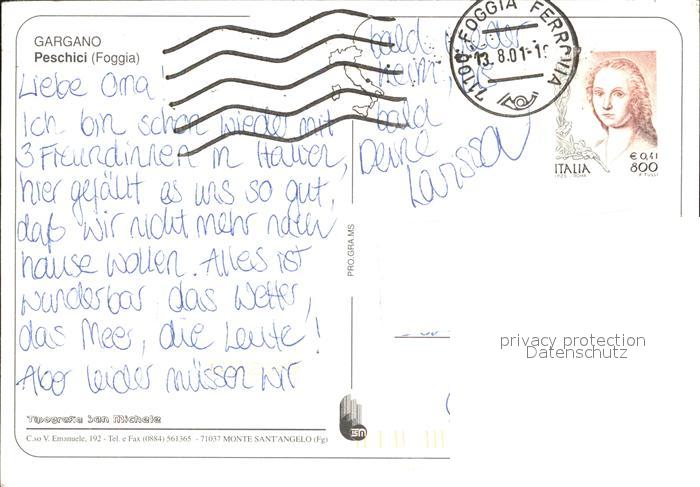 GARGANO
Peschici (Foggia)
Liebe Oma!
Ich bin schon wieder mit
3 Freundinnen in Italien,
hier gefällt es uns so gut,
daß wir nicht mehr nach
hause wollen. Alles ist
wunderbar das Wetter,
das Meer, die Leute!
Aber leider müssen wir
bald wieder
heim
bald
Deine
Larissa
71100 FOGGIA FERROVIA
13.8.01-1
€ 0,41
ITALIA 800
PRO.GRA.MS
privacy protection
Datenschutz
Tipografia San Michele
C.so V. Emanuele, 192 - Tel. e Fax (0884) 561365 - 71037 MONTE SANT'ANGELO (Fg)